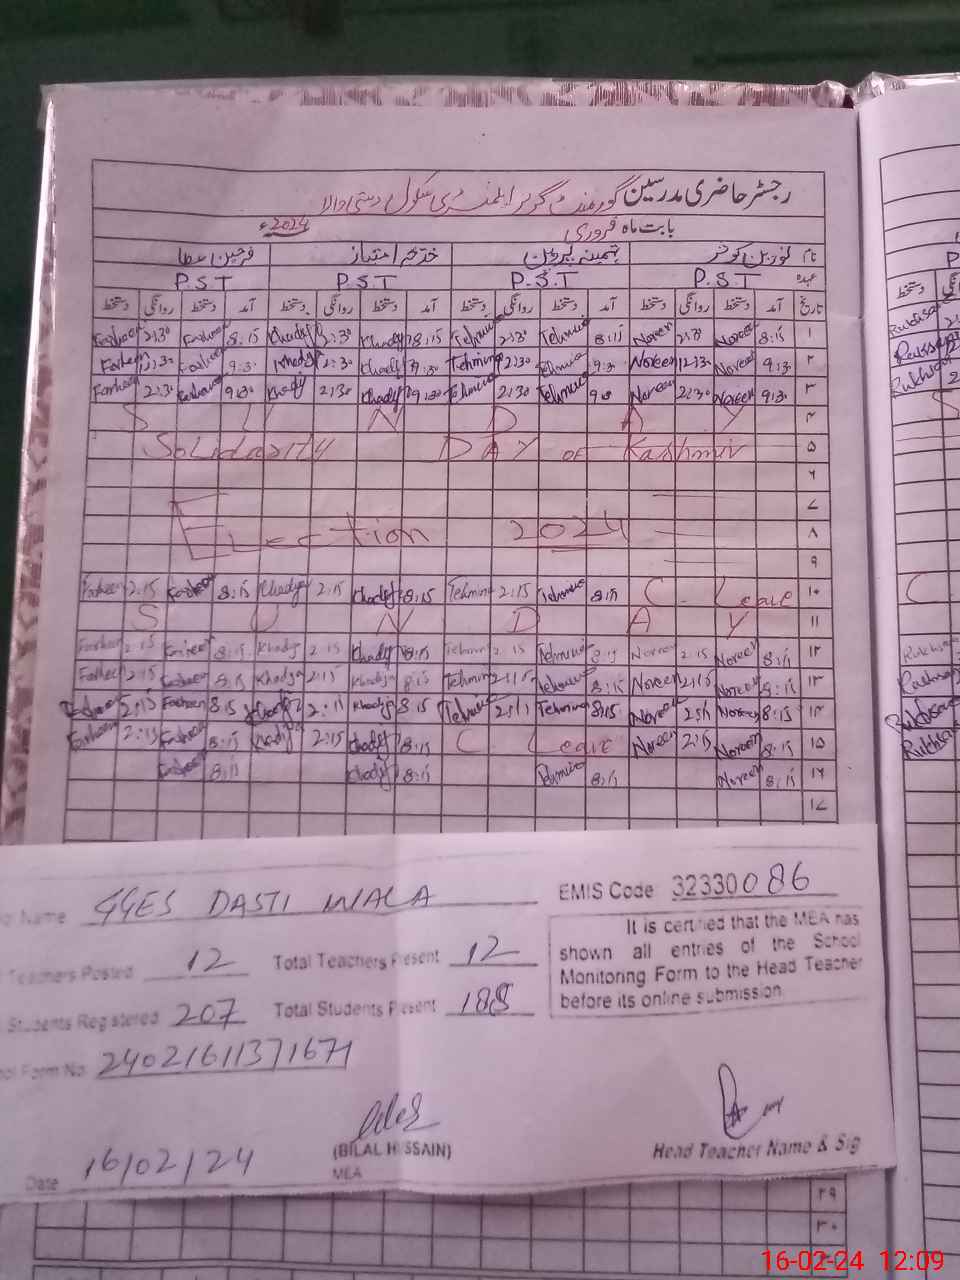 رجسٹر حاضری مدرسین گورنمنٹ گرلز ایلمنٹری سکول دستی والا
بابت ماہ فروری 2024ء
نام نورین کوثر تہمینہ پروین خدیجہ امتیاز فرحین عطا
عہدہ P.S.T P.S.T P.S.T P.S.T
تاریخ آمد دستخط روانگی دستخط آمد دستخط روانگی دستخط آمد دستخط روانگی دستخط آمد دستخط روانگی دستخط
Farheen 2:30 Farheen 8:15 Khadija 2:30 Khadija 8:15 Tehmina 2:30 Tehmina 8:15 Noreen 2:30 Noreen 8:15 ١
Farheen 2:30 Farheen 9:30 Khadija 2:30 Khadija 9:30 Tehmina 2:30 Tehmina 9:30 Noreen 12:30 Noreen 9:30 ٢
Farheen 2:30 Farheen 9:30 Khadija 2:30 Khadija 9:30 Tehmina 2:30 Tehmina Noreen 2:30 Noreen 9:30 ٣
S U N D A Y ۴
Solidarity DAY OF Kashmir ۵
۶
۷
Election 2024 ٨
٩
Farheen 2:15 Farheen 8:15 Khadija 2:15 Khadija 8:15 Tehmina 2:15 Tehmina 8:15 C. Leave ١٠
S U N D A Y ١١
Farheen 2:15 Farheen 8:15 Khadija 2:15 Khadija 8:15 Tehmina 2:15 Tehmina 8:15 Noreen 2:15 Noreen 8:15 ١٢
Farheen 2:15 Farheen 8:15 Khadija 2:15 Khadija 8:15 Tehmina 2:15 Tehmina 8:15 Noreen 2:15 Noreen 8:15 ١٣
Farheen 2:15 Farheen 8:15 Khadija 2:15 Khadija 8:15 Tehmina 2:15 Tehmina 8:15 Noreen 2:15 Noreen 8:15 ١۴
Farheen 2:15 Farheen 8:15 Khadija 2:15 Khadija 8:15 C. Leave Noreen 2:15 Noreen 8:15 ١۵
Farheen 8:15 Khadija 8:15 Tehmina 8:15 Noreen 8:15 ١۶
١۷
Name GGES DASTI WALA EMIS Code 32330086
Teachers Posted 12 Total Teachers Present 12
Students Registered 207 Total Students Present 188
Form No 24021611371671
It is certified that the MEA has
shown all entries of the School
Monitoring Form to the Head Teacher
before its online submission
(BILAL HUSSAIN)
MEA
Head Teacher Name & Sig
Date 16/02/24
٢٩
٣٠
16-02-24 12:09